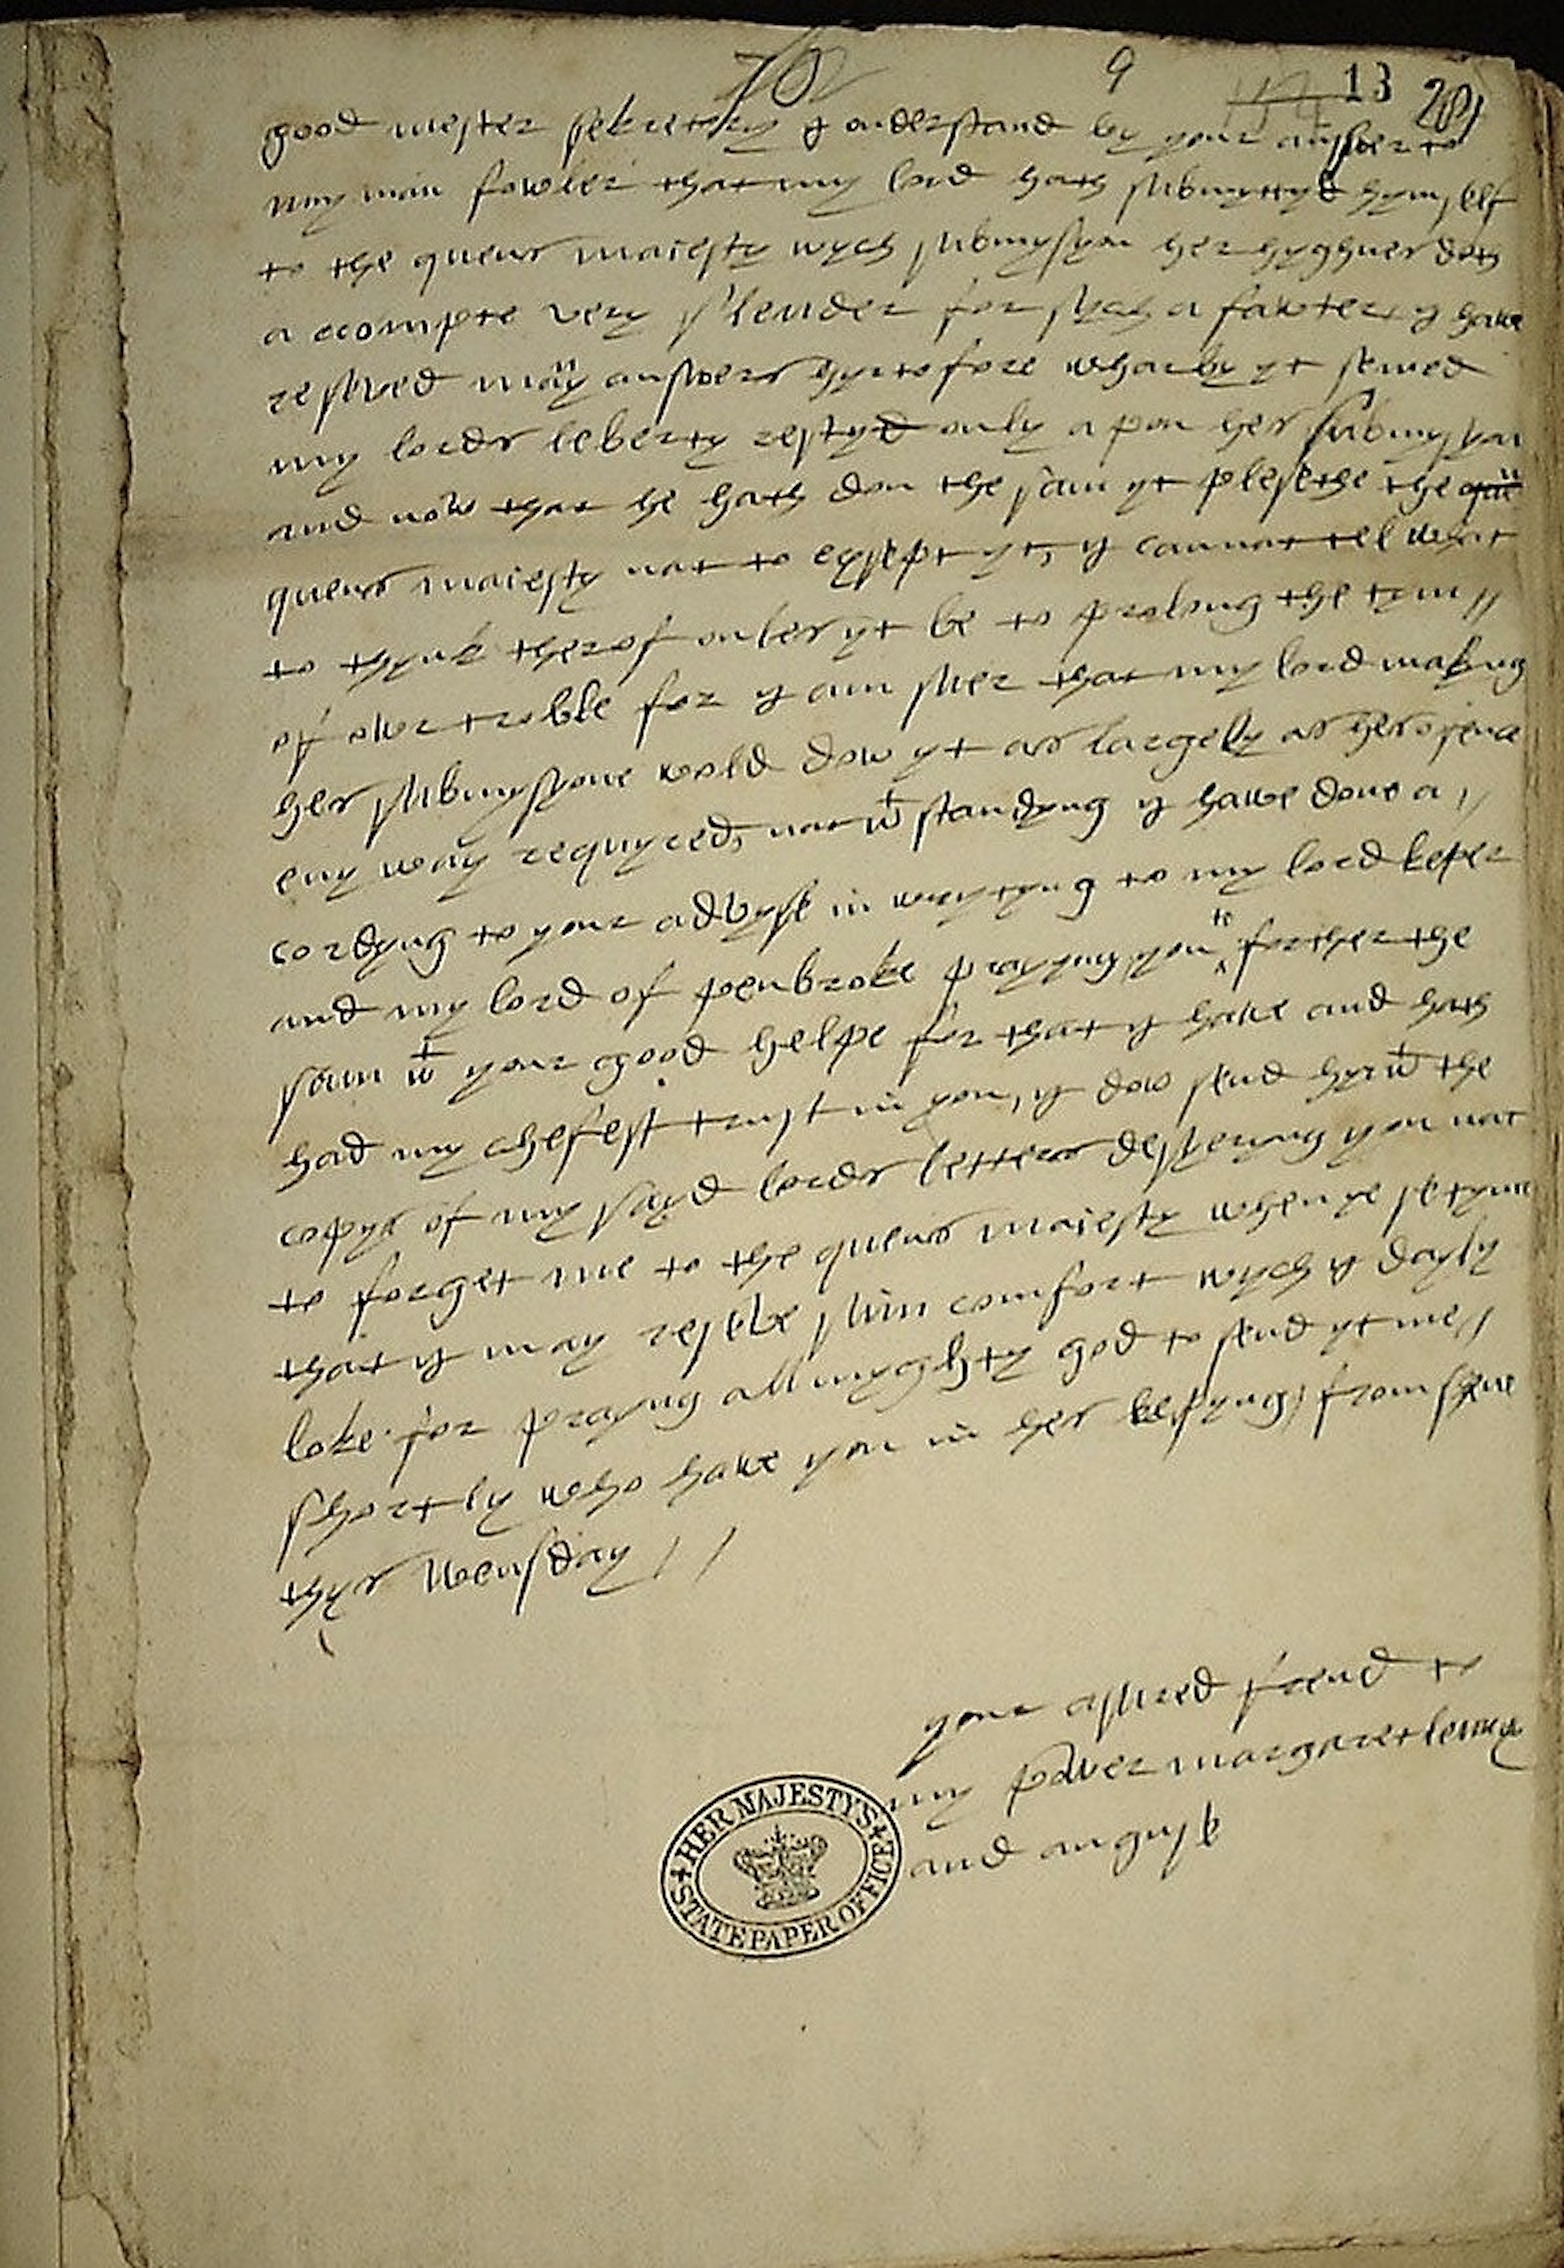 9 13
good mester sekretory y onderstand by your answer to
my man fowler that my lord hath submyttyd hymself
to the quens maiesty wych submysyon her hyghnes doth
a ccompte very slender for sych a fawter, y have
reseved many answers hyrtofore wharby yt semed
my lords leberty restyd only apon hes submysyon
and now that he hath don the sam yt plesethe the que
quens maiesty not to exsept yt, y cannot tel what
to thynk therof onles yt be to prolong the tym //
of owr troble for y am suer that my lord making
hes submysyone wold dow yt as largely as hes ofence
eny way requyred, not wt standyng y have done a //
cordyng to your advyse in wrytyng to my lord keper
and my lord of penbroke prayyng you to forther the
sam wt your good helpe for that y have and hath
had my chefest trust in you, y dow send hyrwt the
copys of my sayd lords letters desyeryng you not
to forget me to the quens maiesty when ye se tyme
that y may reseve sum comfort wych y dayly
loke for prayng allmyghty god to send yt me //
shortly who have you in hes kepyng, from shene
thys Wensday //
your asured frend to
my power margaret lennex
and anguse
HER MAJESTY'S
STATE PAPER OFFICE